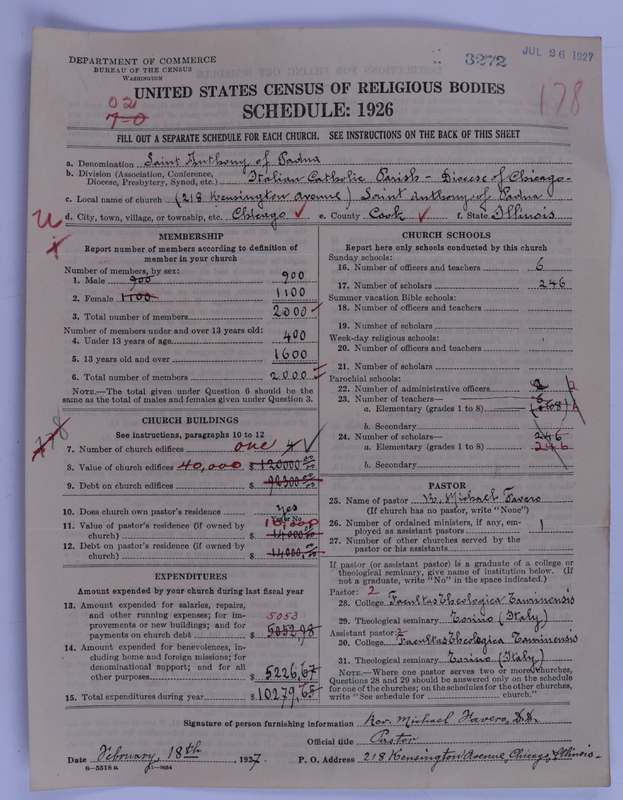 DEPARTMENT OF COMMERCE
BUREAU OF THE CENSUS
WASHINGTON
3272
JUL 26 1927
UNITED STATES CENSUS OF RELIGIOUS BODIES
02
7-0
SCHEDULE: 1926
178
FILL OUT A SEPARATE SCHEDULE FOR EACH CHURCH. SEE INSTRUCTIONS ON THE BACK OF THIS SHEET
a. Denomination Saint Anthony of Padua
b. Division (Association, Conference, Diocese, Presbytery, Synod, etc.) Italian Catholic Parish - Diocese of Chicago-
c. Local name of church (218 Kensington Avenue) Saint Anthony of Padua
d. City, town, village, or township, etc. Chicago e. County Cook f. State Illinois
MEMBERSHIP
Report number of members according to definition of
member in your church
Number of members, by sex:
1. Male 900 900
2. Female 1100 1100
3. Total number of members 2000
Number of members under and over 13 years old:
4. Under 13 years of age 400
5. 13 years old and over 1600
6. Total number of members 2000
NOTE.—The total given under Question 6 should be the
same as the total of males and females given under Question 3.
CHURCH BUILDINGS
See instructions, paragraphs 10 to 12
178
7. Number of church edifices one
8. Value of church edifices 40,000 $120000.00
9. Debt on church edifices $92300.00
10. Does church own pastor's residence? Yes
Yes or No
11. Value of pastor's residence (if owned by 10,000
church) $14000.00
12. Debt on pastor's residence (if owned by
church) $14000.00
EXPENDITURES
Amount expended by your church during last fiscal year
13. Amount expended for salaries, repairs,
and other running expenses; for im-
provements or new buildings; and for 5053
payments on church debt $5052,98
14. Amount expended for benevolences, in-
cluding home and foreign missions; for
denominational support; and for all
other purposes $5226,67
15. Total expenditures during year $10279,65
CHURCH SCHOOLS
Report here only schools conducted by this church
Sunday schools:
16. Number of officers and teachers 6
17. Number of scholars 246
Summer vacation Bible schools:
18. Number of officers and teachers
19. Number of scholars
Week-day religious schools:
20. Number of officers and teachers
21. Number of scholars
Parochial schools:
22. Number of administrative officers 2
23. Number of teachers— 6
a. Elementary (grades 1 to 8)
b. Secondary
24. Number of scholars— 246
a. Elementary (grades 1 to 8) 246
b. Secondary
PASTOR
25. Name of pastor R. Michael Favero
(If church has no pastor, write "None")
26. Number of ordained ministers, if any, em-
ployed as assistant pastors 1
27. Number of other churches served by the
pastor or his assistants
If pastor (or assistant pastor) is a graduate of a college or
theological seminary, give name of institution below. (If
not a graduate, write "No" in the space indicated.)
Pastor: 2
28. College Facultas Theologica Taurinensis
29. Theological seminary Torino (Italy)
Assistant pastor: 2
30. College Facultas Theologica Taurinensis
31. Theological seminary Torino (Italy)
NOTE.—Where one pastor serves two or more churches,
Questions 28 and 29 should be answered only on the schedule
for one of the churches; on the schedules for the other churches,
write "See schedule for church."
Signature of person furnishing information Rev. Michael Favero, D.D.
Official title Pastor
Date February, 18th, 1927. P. O. Address 218 Kensington Avenue, Chicago, Illinois-
8-5518a